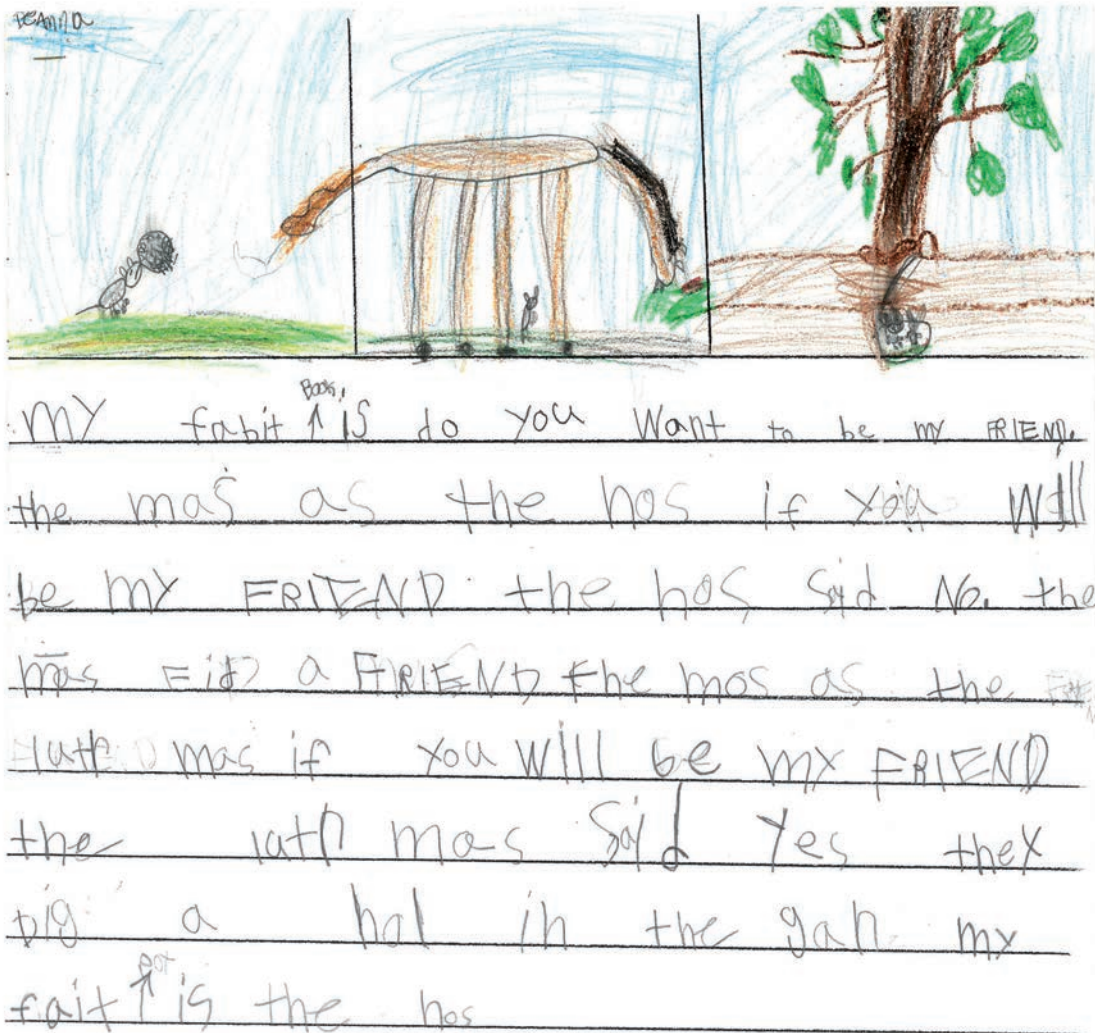 DeAnna
Book,
MY fabit ↑ is do you Want to be my FRIEND.
the mas as the hos if you Will
be my FRIEND. the hos Said No. the
mas Fid a FRIEND the mos as the
mas if you Will be my FRIEND
the latl mas Said Yes they
Dig a hol in the gan my
pot
fait ↑ is the hos